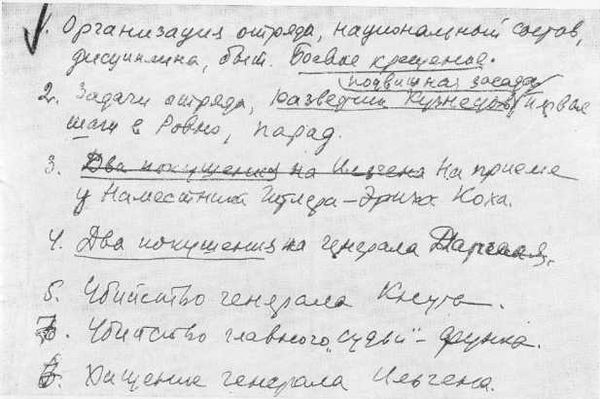 1. Организация отряда, национальный состав,
дисциплина, быт. Боевое крещение.
подвижная засада
2. Задачи отряда, разведчик Кузнецов, первые
шаги в Ровно, парад.
3. Два покушения на Ильгена На приеме
у Наместника Гитлера – Эриха Коха.
4. Два покушения на генерала Даргеля.
5. Убийство генерала Кнута.
7. Убийство главного "судьи" – Функа.
6. Хищение генерала Ильгена.